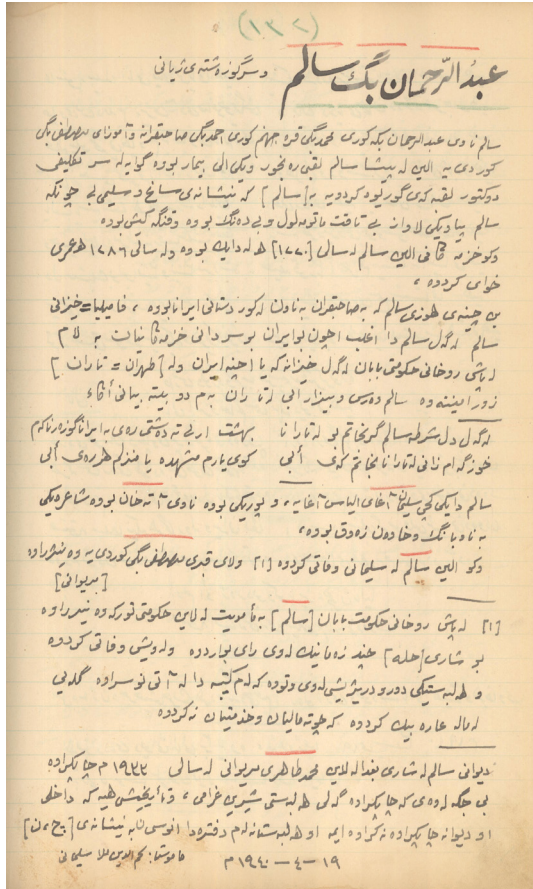 (١٣٢)
عبدالرّحمان بگ سالم وسرگوزه شته ی ژیانی
سالم ناوی عبدالرحمان بگه کوری محمد بگی قره جهنم کوری احمد بگی صاحبقرانه وآموزای مصطفی بگی
کوردی یه الین له پیشا سالم لقبی ره نجور ویکی الی بیمار بووه گوایه له سر تکلیفی
دوکتور لقبه که ی گوریوه کردویه به [سالم] که نیشانه ی ساغ وسلیمی بی چونکه
سالم پیاویکی لاواز بی تاقت ماتومه لول وبی ده نگ بووه وفنگه کیش بووه
وکو خزمه کانی الین سالم له سالی [١٢٢٠] هه له دایک بووه وله سالی ١٢٨٦ هه عمری
خوای کردوه ،
بن چینه ی هوزی سالم که به صاحبقران به ناون له کوردستانی ایرانا بووه ، فامیلیا = خیزانی
سالم له گه ل سالم دا اغلب اچون بو ایران بو سردانی خزمه کانیات به لام
له پاش روخانی حکومتی بابان له گه ل خیزانه که یا اچنه ایران وله [طهران = تاران]
زور امیننه وه سالم وه رس وبیزار ابی له تاران به م دو بیته بیانی آکاء
له گه ل دل شرطه سالم گر نجاتم بو له تارانا بهشت ار بی ته ده شتی ره ی به ایرانا گوزه ر ناکم
خوزگه ام زانی له تارانا نجاتم که ی أبی کوی یارم مشهده یا منزلم طرره ی أبی
سالم دایکی کچی سلیمان آغای الیاس آغایه ، و پوریکی بووه ناوی آته خان بووه شاعره یکی
به ناو بانگ وخاوه ن زه وق بووه ،
وکو الین سالم له سلیمانی وفاتی کردوه [١] ولای قبری مصطفی بگی کوردی یه وه نیژراوه
[مریوانی]
[١] له پاش روخانی حکومت بابان [سالم] به مأموریت له لاین حکومتی تورکه وه نیردراوه
بو شاری [حله] چند زه مانیک له وی رای بواردوه وله ویش وفاتی کردوه
وهه لبه ستیکی دور ودریژیشی له وی وتوه که له م کتیبه دا له آتی نوسراوه گله یی
له ماله عاره بیک کردوه که چوته مالیان وخذمتیان نه کردوه
دیوانی سالم له شاری بغدا له لاین محمد طاهری مریوانی له سالی ١٩٣٣ م چاپکراوه
بی جگه له وه ی که چاپکراوه گه لی هه لبه ستی شیرین غرامی ، وتأریخیشی هیه که داخلی
او دیوانه چاپکراوه نه کراوه ایمه او هه لبه ستانه له م دفتره دا انوسین به نیشانه ی [ ]
١٩ – ٤ – ١٩٤٠ م ماموستا: نجم الدین ملا سلیمانی